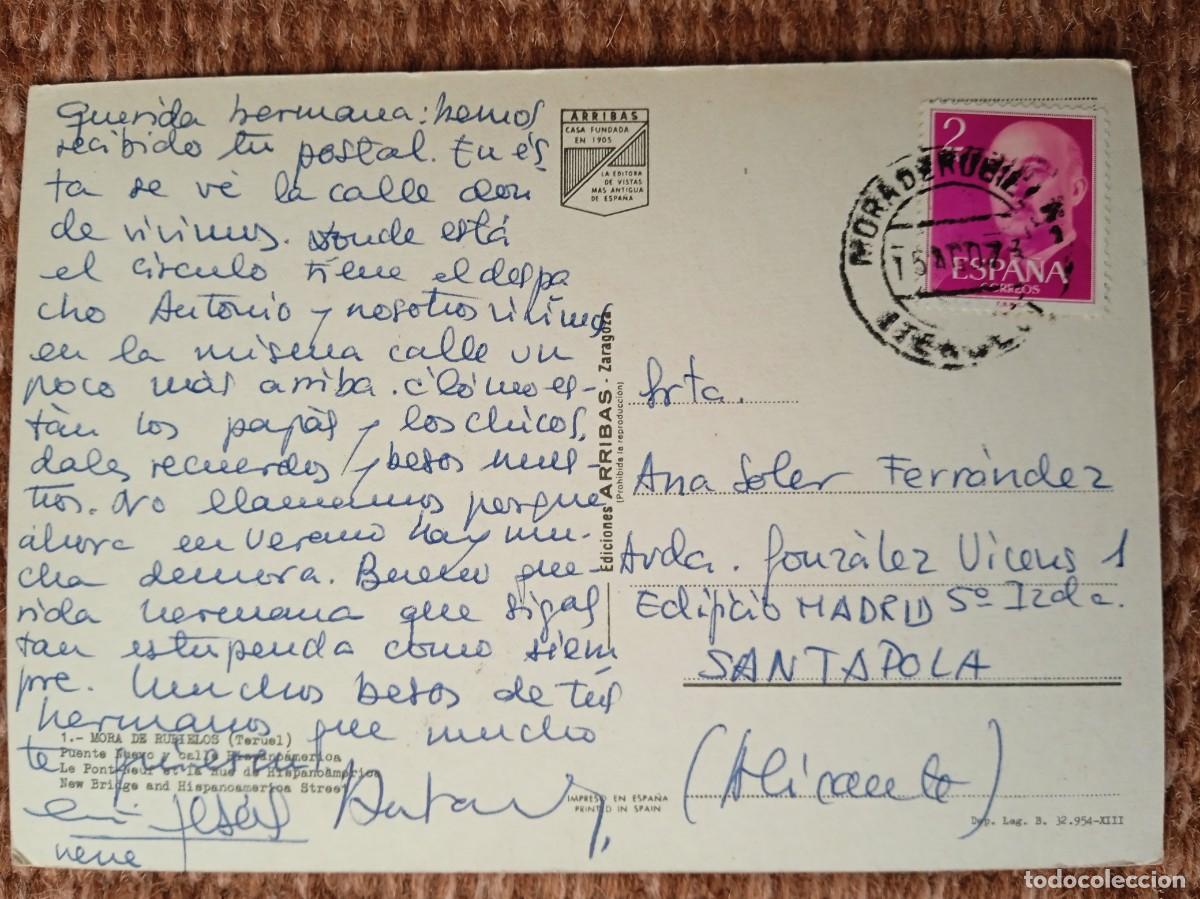 Querida hermana: hemos
recibido tu postal. En és
ta se vé la calle don
de vivimos. Donde está
el circulo tiene el despa
cho Antonio y nosotros vivimos
en la misma calle un
poco más arriba. ¿Cómo es-
tán los papás y los chicos,
dales recuerdos y besos nues-
tros. No llamamos porque
ahora en verano hay mu-
cha demora. Bueno que-
rida hermana que sigas
tan estupenda como siem
pre. Muchos besos de tus
hermanos que mucho
te quieren
Jesús
nene
1.- MORA DE RUBIELOS (Teruel)
Puente Nuevo y calle Hispanoamérica
Le Pont Neuf et la Rue de Hispanoamérica
New Bridge and Hispanoamerica Street
ARRIBAS
CASA FUNDADA
EN 1905
LA EDITORA
DE VISTAS
MAS ANTIGUA
DE ESPAÑA
Ediciones ARRIBAS - Zaragoza
(Prohibida la reproducción)
IMPRESO EN ESPAÑA
PRINTED IN SPAIN
2
ESPAÑA
CORREOS
MORA DE RUBIE
Srta.
Ana Soler Fernández
Avda. González Vicens 1
Edificio MADRID 5º Izda.
SANTAPOLA
(Alicante)
Dep. Leg. B. 32.954-XIII
todocoleccion